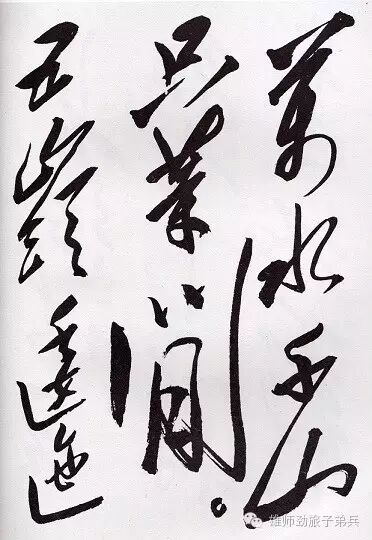 萬水千山
只等閒。
五嶺逶迤
雄师劲旅子弟兵